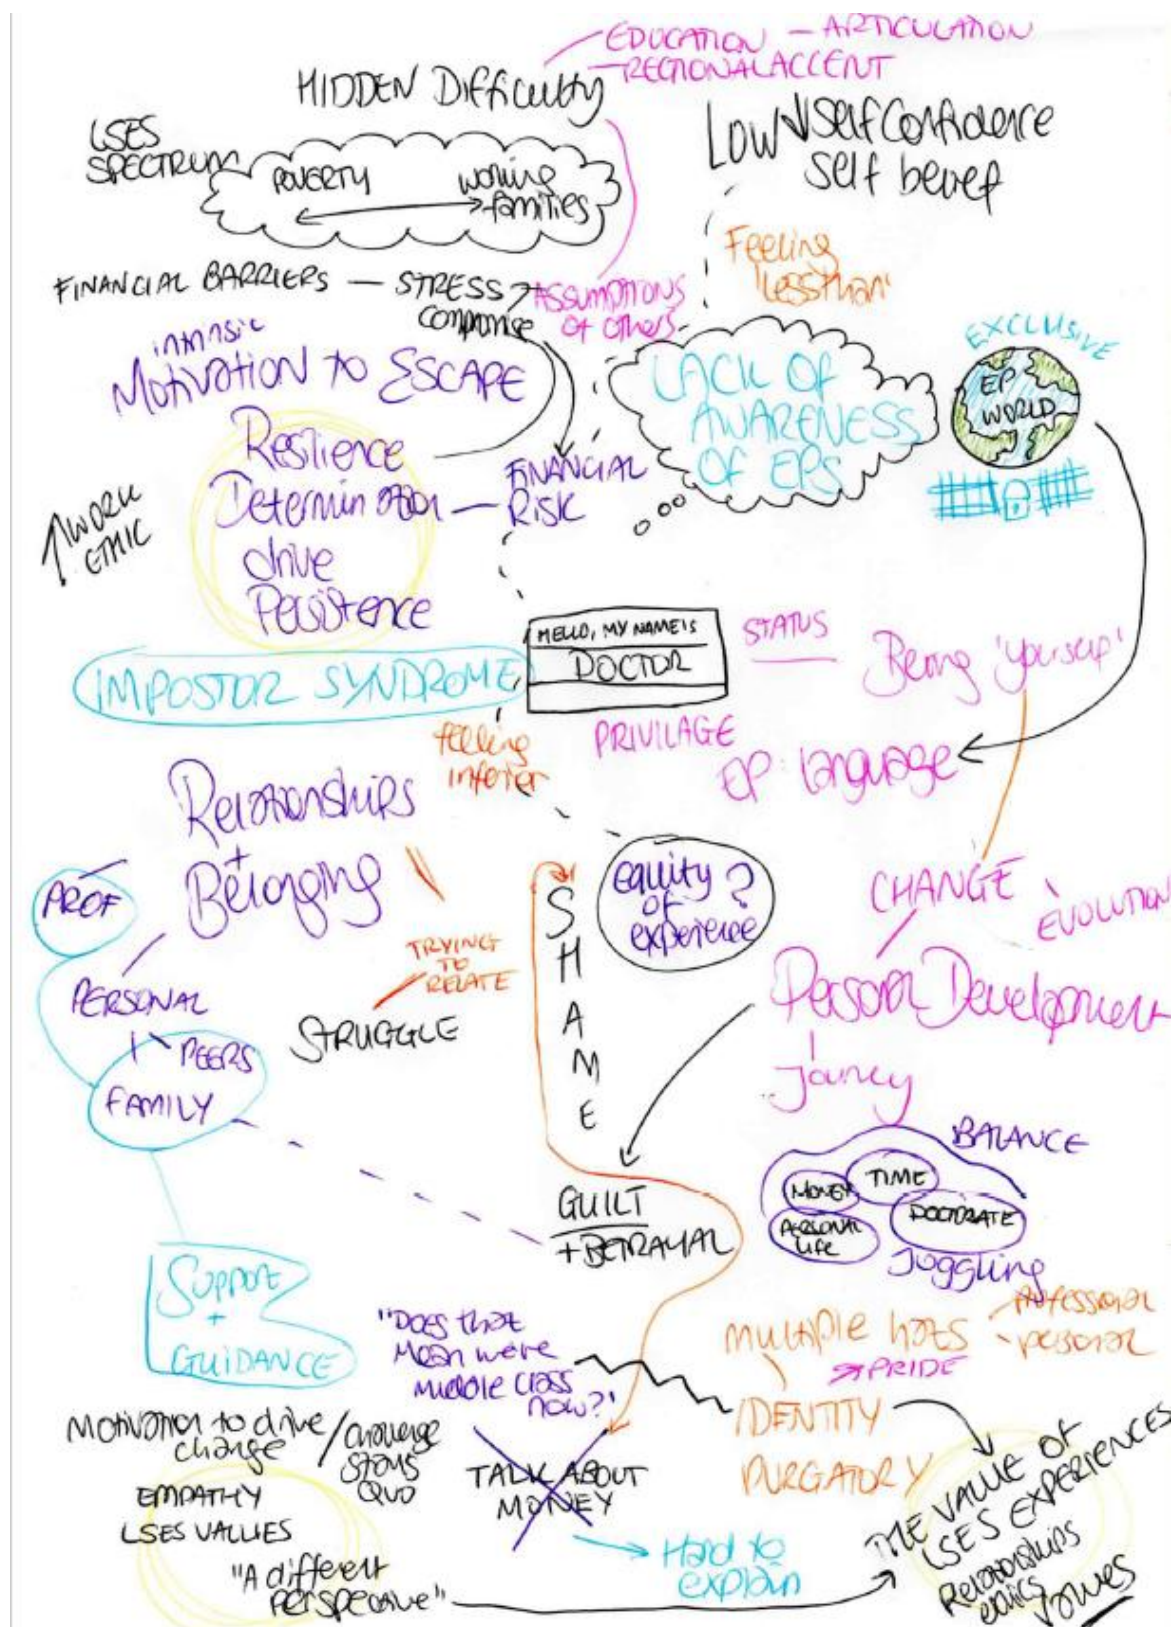 EDUCATION - ARTICULATION
REGIONAL ACCENT
HIDDEN Difficulty
LSES
SPECTRUM
POVERTY
working
families
LOW ↓ Self Confidence
Self belief
Feeling
'less than'
FINANCIAL BARRIERS — STRESS
compromise
ASSUMPTIONS
of others
intrinsic
MOTIVATION TO ESCAPE
LACK OF
AWARENESS
OF EPS
EXCLUSIVE
EP
WORLD
Resilience
Determination
drive
Persistence
FINANCIAL
RISK
↑ WORK
ETHIC
HELLO, MY NAME IS
DOCTOR
STATUS
Being 'yourself'
IMPOSTOR SYNDROME
PRIVILAGE
feeling
inferior
EP language
Relationships
+
Belonging
PROF
PERSONAL
PEERS
FAMILY
TRYING
TO
RELATE
STRUGGLE
SHAME
equity ?
of
experience
CHANGE
EVOLUTION
Personal Development
Journey
BALANCE
MONEY
TIME
PERSONAL
LIFE
DOCTORATE
Juggling
GUILT
+ BETRAYAL
Support
+
GUIDANCE
"Does that
Mean we're
middle class
now?"
multiple hats
professional
personal
PRIDE
IDENTITY
PURGATORY
Motivation to drive
change
/ challenge
status
QUO
EMPATHY
LSES VALUES
"A different
PERSPECTIVE"
TALK ABOUT
MONEY
Hard to
explain
THE VALUE OF
LSES EXPERIENCES
Relationships
ethics